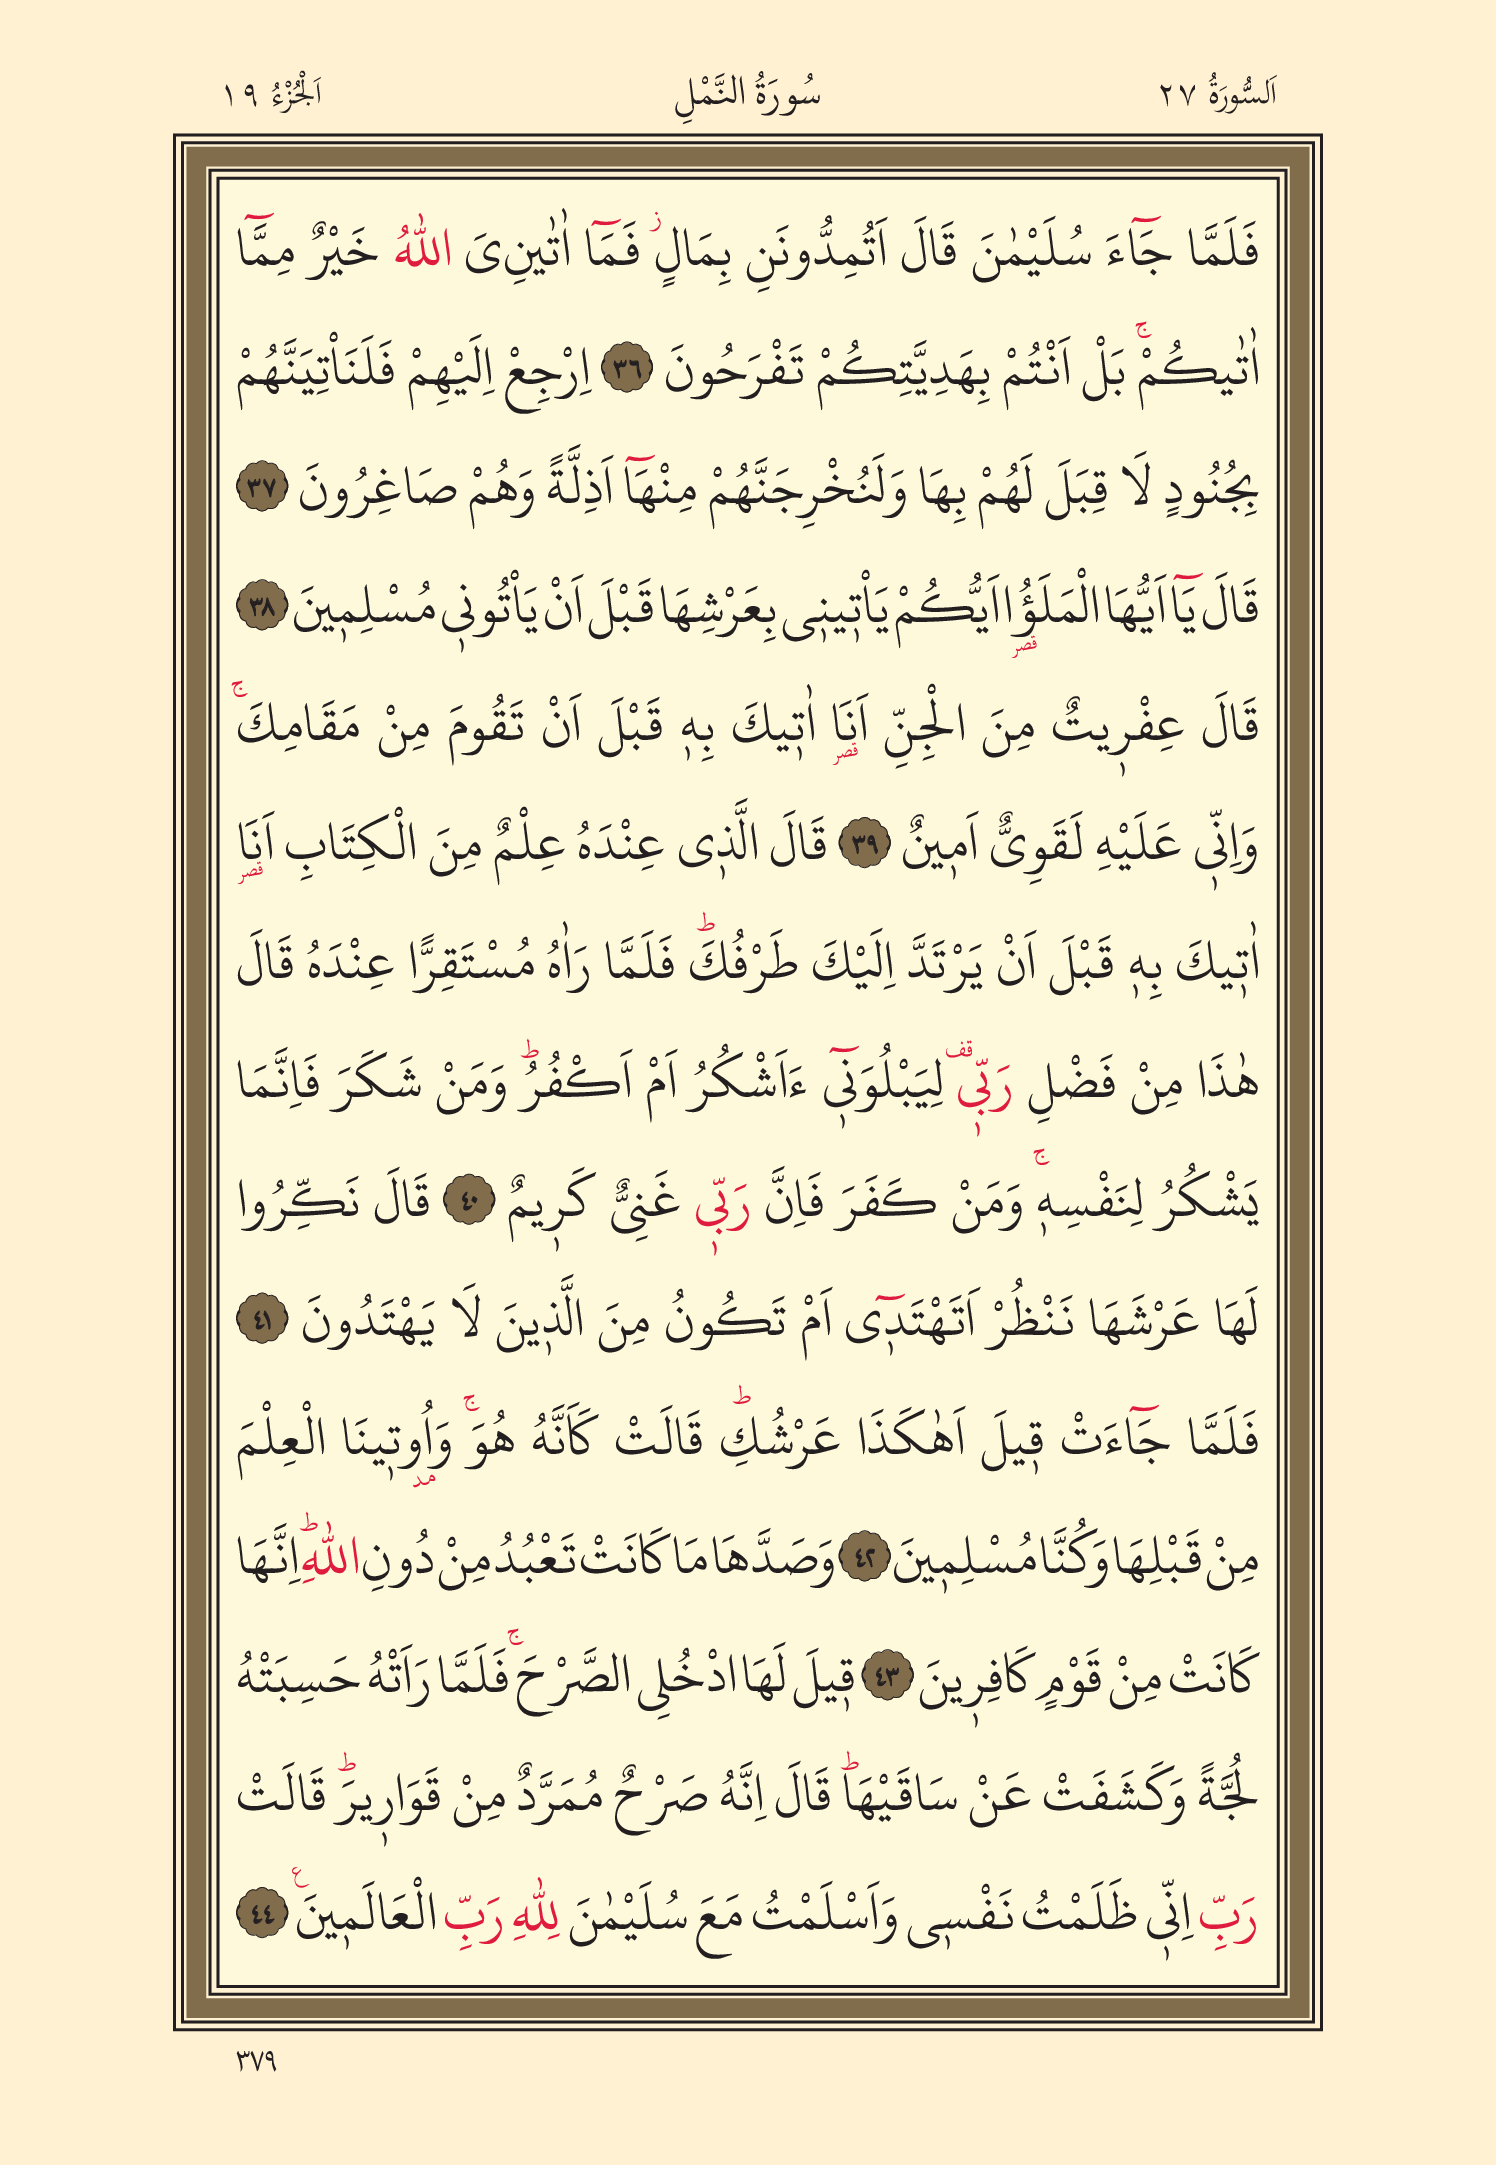 اَلسُّورَةُ ٢٧ سُورَةُ النَّمْلِ اَلْجُزْءُ ١٩
فَلَمَّا جَٓاءَ سُلَيْمٰنَ قَالَ اَتُمِدُّونَنِ بِمَالٍۘ فَمَٓا اٰتٰينِىَ اللّٰهُ خَيْرٌ مِمَّٓا
اٰتٰيكُمْۚ بَلْ اَنْتُمْ بِهَدِيَّتِكُمْ تَفْرَحُونَ ﴿٣٦﴾ اِرْجِعْ اِلَيْهِمْ فَلَنَأْتِيَنَّهُمْ
بِجُنُودٍ لَا قِبَلَ لَهُمْ بِهَا وَلَنُخْرِجَنَّهُمْ مِنْهَٓا اَذِلَّةً وَهُمْ صَاغِرُونَ ﴿٣٧﴾
قَالَ يَٓا اَيُّهَا الْمَلَؤُ۬ا اَيُّكُمْ يَأْت۪ين۪ى بِعَرْشِهَا قَبْلَ اَنْ يَأْتُون۪ى مُسْلِم۪ينَ ﴿٣٨﴾ قصر
قَالَ عِفْر۪يتٌ مِنَ الْجِنِّ اَنَا۬ اٰت۪يكَ بِه۪ قَبْلَ اَنْ تَقُومَ مِنْ مَقَامِكَۚ قصر
وَاِنّ۪ى عَلَيْهِ لَقَوِىٌّ اَم۪ينٌ ﴿٣٩﴾ قَالَ الَّذ۪ى عِنْدَهُ عِلْمٌ مِنَ الْكِتَابِ اَنَا۬ قصر
اٰت۪يكَ بِه۪ قَبْلَ اَنْ يَرْتَدَّ اِلَيْكَ طَرْفُكَۜ فَلَمَّا رَاٰهُ مُسْتَقِرًّا عِنْدَهُ قَالَ
هٰذَا مِنْ فَضْلِ رَبّ۪ى قف لِيَبْلُوَن۪ٓى ءَاَشْكُرُ اَمْ اَكْفُرُۜ وَمَنْ شَكَرَ فَاِنَّمَا
يَشْكُرُ لِنَفْسِه۪ۚ وَمَنْ كَفَرَ فَاِنَّ رَبّ۪ى غَنِىٌّ كَر۪يمٌ ﴿٤٠﴾ قَالَ نَكِّرُوا
لَهَا عَرْشَهَا نَنْظُرْ اَتَهْتَد۪ٓى اَمْ تَكُونُ مِنَ الَّذ۪ينَ لَا يَهْتَدُونَ ﴿٤١﴾
فَلَمَّا جَٓاءَتْ ق۪يلَ اَهٰكَذَا عَرْشُكِۜ قَالَتْ كَاَنَّهُ هُوَۚ وَاُو۫ت۪ينَا الْعِلْمَ مد
مِنْ قَبْلِهَا وَكُنَّا مُسْلِم۪ينَ ﴿٤٢﴾ وَصَدَّهَا مَا كَانَتْ تَعْبُدُ مِنْ دُونِ اللّٰهِۜ اِنَّهَا
كَانَتْ مِنْ قَوْمٍ كَافِر۪ينَ ﴿٤٣﴾ ق۪يلَ لَهَا ادْخُلِى الصَّرْحَۚ فَلَمَّا رَاَتْهُ حَسِبَتْهُ
لُجَّةً وَكَشَفَتْ عَنْ سَاقَيْهَاۜ قَالَ اِنَّهُ صَرْحٌ مُمَرَّدٌ مِنْ قَوَار۪يرَۜ قَالَتْ
رَبِّ اِنّ۪ى ظَلَمْتُ نَفْس۪ى وَاَسْلَمْتُ مَعَ سُلَيْمٰنَ لِلّٰهِ رَبِّ الْعَالَم۪ينَ ع ﴿٤٤﴾
٣٧٩